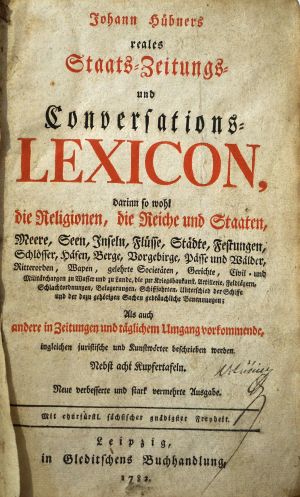 Johann Hübners
reales
Staats-Zeitungs-
und
Conversations-
LEXICON,
darinn so wohl
die Religionen, die Reiche und Staaten,
Meere, Seen, Inseln, Flüsse, Städte, Festungen,
Schlösser, Häfen, Berge, Vorgebirge, Pässe und Wälder,
Ritterorden, Wapen, gelehrte Societäten, Gerichte, Civil- und
Militärchargen zu Wasser und zu Lande, die zur Kriegsbaukunst, Artillerie, Feldlägern,
Schlachtordnungen, Belagerungen, Schiffahrten, Unterschied der Schiffe
und der dazu gehörigen Sachen gebräuchliche Benennungen;
Als auch
andere in Zeitungen und täglichem Umgang vorkommende,
ingleichen juristische und Kunstwörter beschrieben werden.
Nebst acht Kupfertafeln.
Neue verbesserte und stark vermehrte Ausgabe.
Mit churfürstl. sächsischer gnädigster Freyheit.
Leipzig,
in Gleditschens Buchhandlung,
1782.